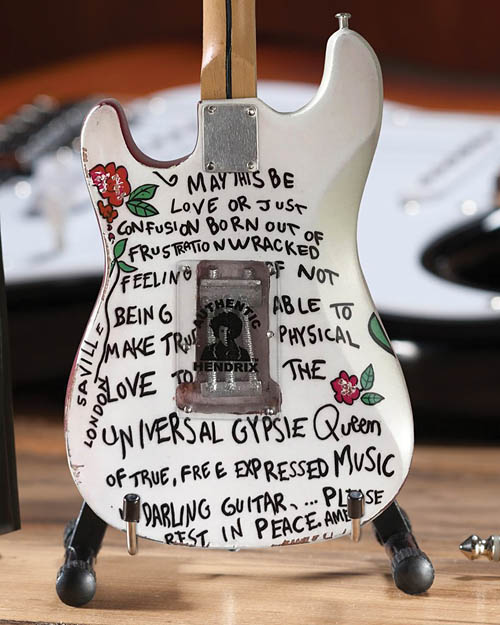 MAY THIS BE
LOVE OR JUST
CONFUSION BORN OUT OF
FRUSTRATION WRACKED
FEELING OF NOT
BEING ABLE TO
MAKE TRUE PHYSICAL
LOVE TO THE
UNIVERSAL GYPSIE Queen
OF TRUE, FREE EXPRESSED MUSIC
DARLING GUITAR.... PLEASE
REST IN PEACE. AMEN
SAVILLE
LONDON
AUTHENTIC
HENDRIX